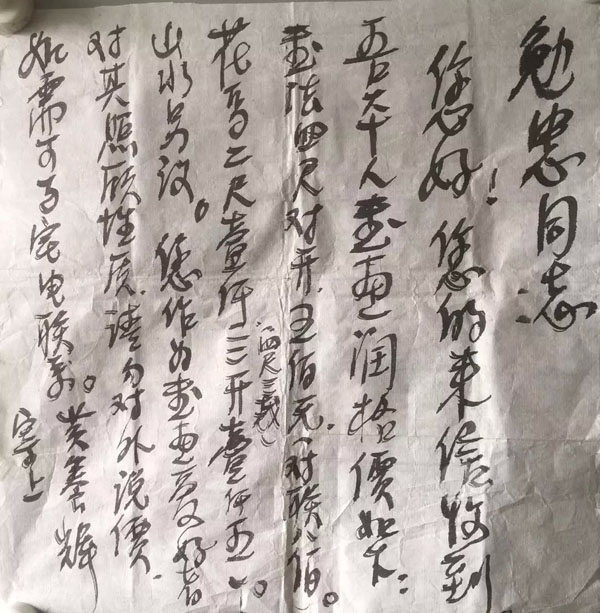 勉忠同志:
您好!您的来信收到
人書画润格價如下:
書法四尺对开.五佰元.(对联八佰)。
(四尺三裁)
花鸟二尺壹仟三开壹仟五。
山水另议。您作为書画爱好者
对其照顾性质.请勿对外说價.
如需可与宅电联系。黄
上